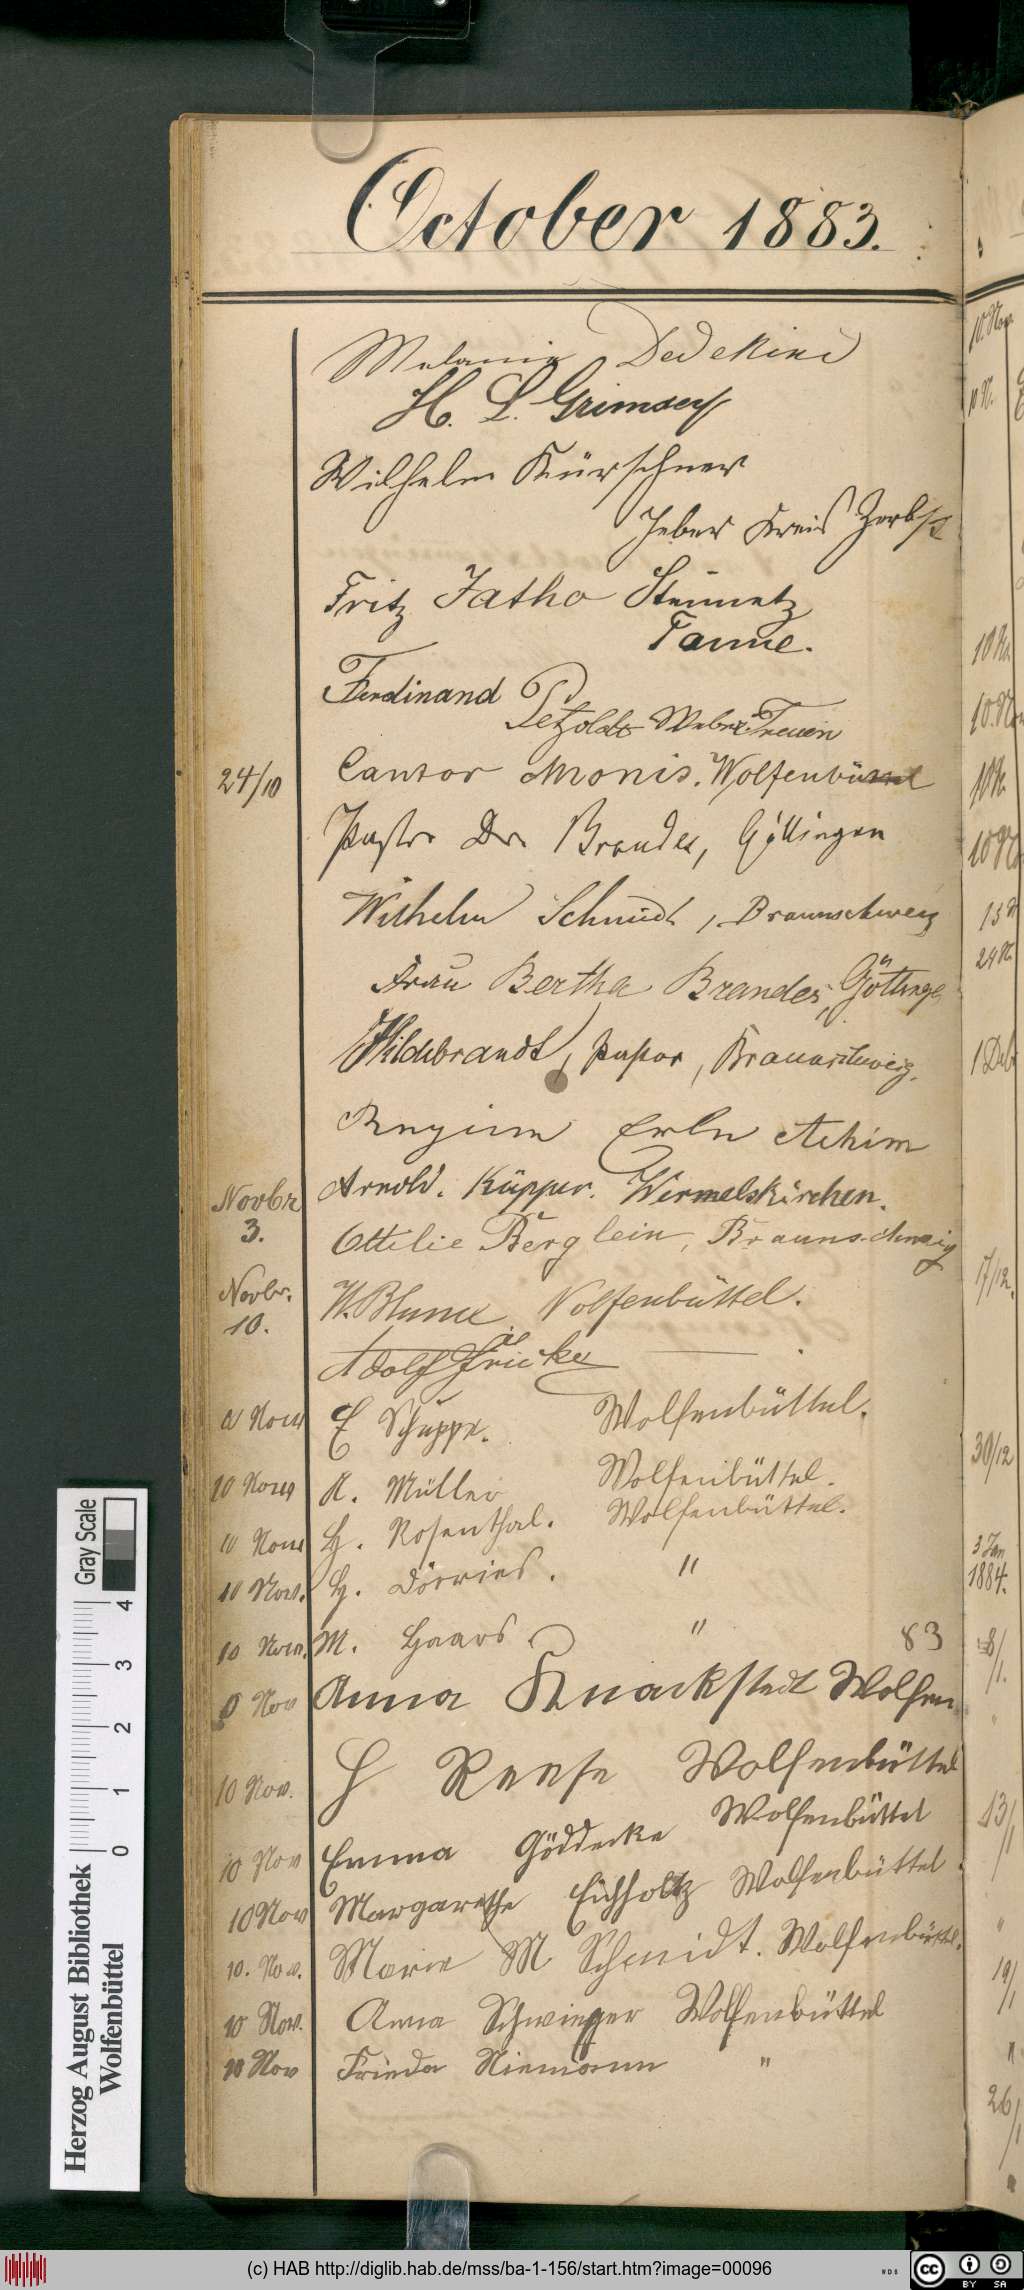 October 1883.
Melanie Dedekind
H. L. Grimsey
Wilhelm Kürschner
Jeber Kreis Zerbst
Fritz Jatho Steinmetz
Tanne.
Ferdinand Petzoldt Weber Treuen
24/10 Cantor Monis. Wolfenbüttel
Pastor Dr. Brandes, Göttingen
Wilhelm Schmidt, Braunschweig
Frau Bertha Brandes, Göttingen
Hildebrandt, Pastor, Braunschweig.
Achim
Novbr 3. Arnold. Küpper. Wermelskirchen.
Ottilie Berglein, Braunschweig
Novbr. 10. W. Blume Wolfenbüttel.
Adolf Fricke
Nov E Schuppe. Wolfenbüttel.
10 Nov A. Müller Wolfenbüttel.
10 Nov H. Rosenthal. Wolfenbüttel.
10 Nov. H. Dörries. "
10 Nov. M. Haars "
83
Nov Anna Knackstedt Wolfen
10 Nov. H Reese Wolfenbüttel
10 Nov Emma Göddecke Wolfenbüttel
10 Nov Margarethe Eichholtz Wolfenbüttel.
10. Nov. Marie M Schmidt. Wolfenbüttel.
10 Nov. Anna Schwieger Wolfenbüttel
10 Nov Frieda Niemann "
10. Nov.
10 N.
10 N.
10. Nov
10 N.
10 No
24 N.
1 Dcb
17/12.
30/12
3 Jan
1884.
8/1.
13/1
"
19/1
"
26/1
Gray Scale
4
3
2
1
0
Herzog August Bibliothek
Wolfenbüttel
(c) HAB http://diglib.hab.de/mss/ba-1-156/start.htm?image=00096
WDB
cc
BY SA